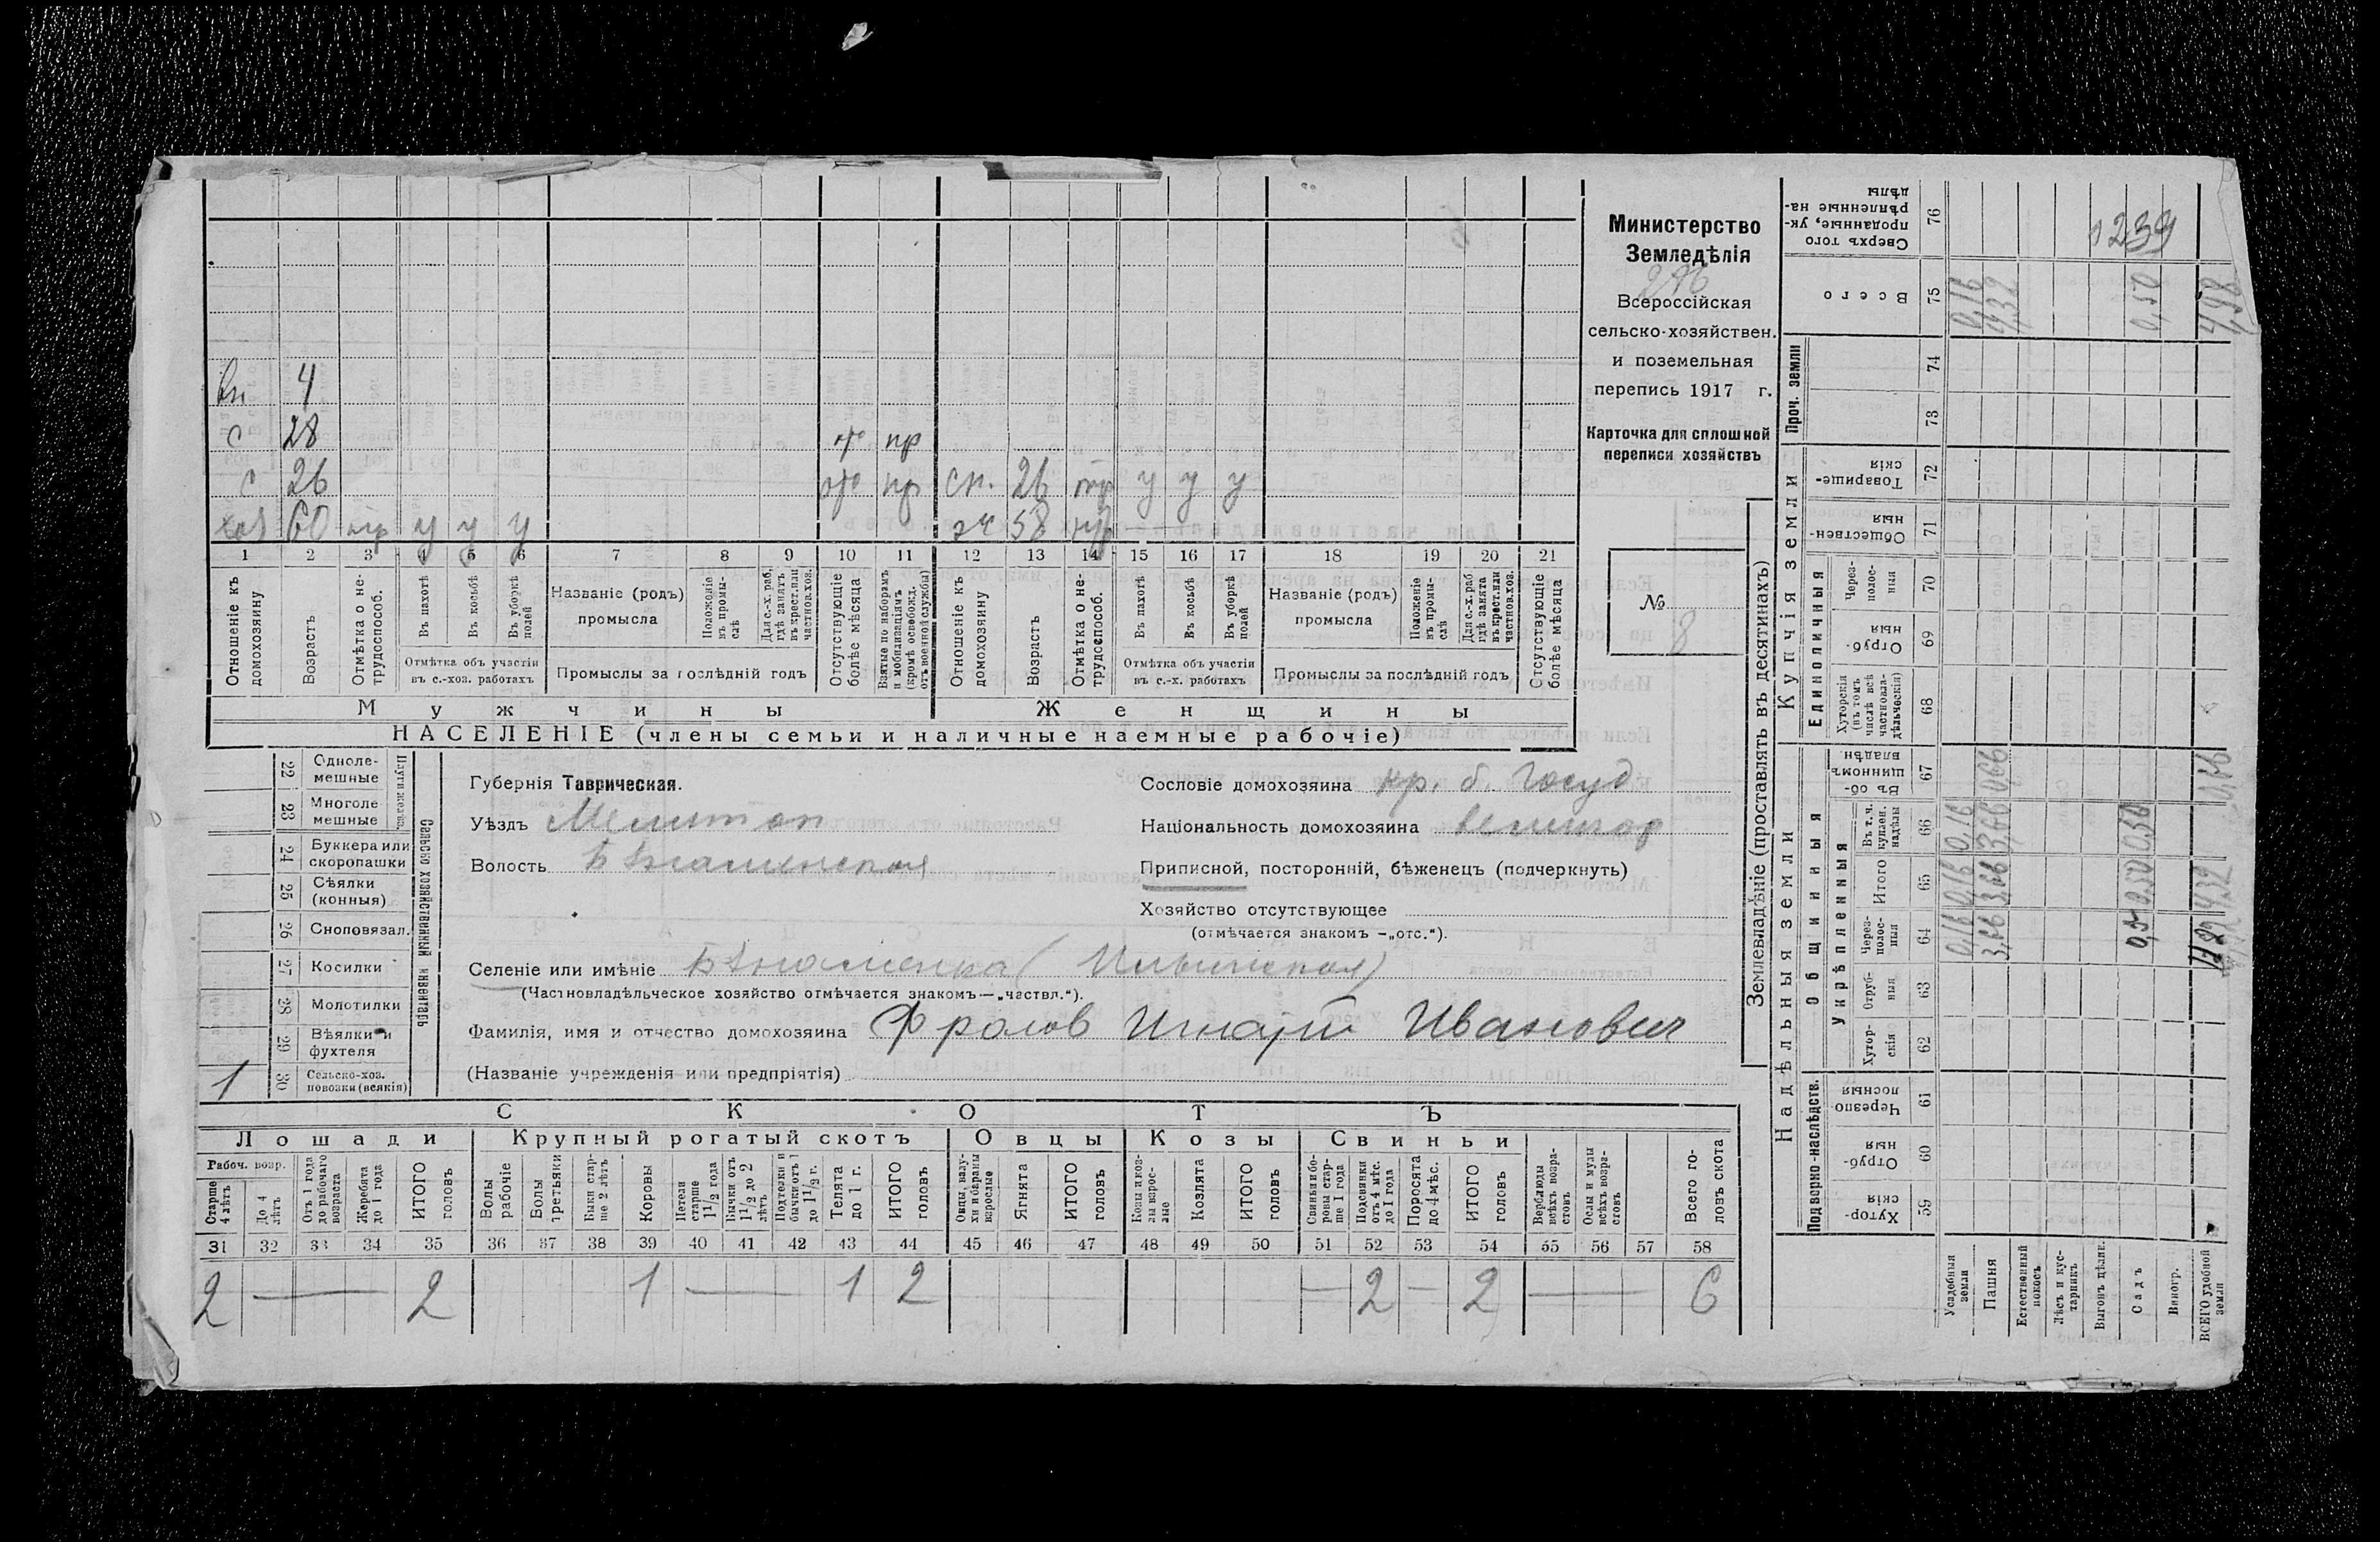 вн 4
с 28 пр
с 26 пр сн. 26 тр у у у
хоз 60 тр у у у 58
1 2 3 4 5 6 7 8 9 10 11 12 13 14 15 16 17 18 19 20 21
Отношеніе къ домохозяину
Возрастъ
Отмѣтка о не-трудоспособ.
Въ пахотѣ
Въ косьбѣ
Въ уборкѣ полей
Отмѣтка объ участіи въ с.-хоз. работахъ
Названіе (родъ) промысла
Положеніе въ промы-слѣ
Для с.-х. раб. гдѣ занятъ въ крест. или частнов. хоз.
Промыслы за послѣдній годъ
Отсутствующіе болѣе мѣсяца
Взятые по наборамъ и мобилизаціямъ (кромѣ освобожд. отъ военной службы)
Отношеніе къ домохозяину
Возрастъ
Отмѣтка о не-трудоспособ.
Въ пахотѣ
Въ косьбѣ
Въ уборкѣ полей
Отмѣтка объ участіи въ с.-х. работахъ
Названіе (родъ) промысла
Положеніе въ промы-слѣ
Для с.-х. раб гдѣ занята въ крест. или частнов. хоз.
Промыслы за послѣдній годъ
Отсутствующіе болѣе мѣсяца
Мужчины Женщины
НАСЕЛЕНІЕ (члены семьи и наличные наемные рабочіе)
Министерство
Земледѣлія
Всероссійская
сельско-хозяйствен.
и поземельная
перепись 1917 г.
Карточка для сплошной
переписи хозяйствъ
№
8
Сельско хозяйственный инвентарь
22 Одноле-мешные
23 Многоле мешные
24 Буккера или скоропашки
25 Сѣялки (конныя)
26 Сноповязал.
27 Косилки
28 Молотилки
29 Вѣялки и фухтеля
30 Сельско-хоз. повозки (всякія) 1
Губернія Таврическая.
Уѣздъ Мелитоп
Волость Бѣ
Сословіе домохозяина кр. б. Госуд
Національность домохозяина великор
Приписной, посторонній, бѣженецъ (подчеркнуть)
Хозяйство отсутствующее
(отмѣчается знакомъ —„отс.“).
Селеніе или имѣніе
(Частновладѣльческое хозяйство отмѣчается знакомъ—„частвл.“).
Фамилія, имя и отчество домохозяина Фролов Игнатій Иванович
(Названіе учрежденія или предпріятія)
СКОТЪ
Лошади Крупный рогатый скотъ Овцы Козы Свиньи
Рабоч. возр.
Старше 4 лѣтъ
До 4 лѣтъ
Отъ 1 года до рабочаго возраста
Жеребята до 1 года
ИТОГО головъ
Волы рабочіе
Волы третьяки
Быки стар-ше 2 лѣтъ
Коровы
Нетели старше 1½ года
Бычки отъ 1½ до 2 лѣтъ
Подтелки и бычки отъ 1 до 1½ г.
Телята до 1 г.
ИТОГО головъ
Овцы, валу-хи и бараны взрослые
Ягнята
ИТОГО головъ
Козы и коз-лы взрос-лые
Козлята
ИТОГО головъ
Свиньи и бо-ровы стар-ше 1 года
Подсвинки отъ 4 мѣс. до 1 года
Поросята до 4 мѣс.
ИТОГО головъ
Верблюды всѣхъ возра-стовъ
Ослы и мулы всѣхъ возра-стовъ
Всего го-ловъ скота
31 32 33 34 35 36 37 38 39 40 41 42 43 44 45 46 47 48 49 50 51 52 53 54 55 56 57 58
2 — 2 1 — 1 2 — 2 — 2 — 6
Землевладѣніе (проставлять въ десятинахъ)
Надѣльныя земли Купчія земли Проч. земли
Подворно-наслѣдств.
Общинныя
Укрѣпленныя
Единоличныя
Хутор-скія 59
Отруб-ныя 60
Черезпо-лосныя 61
Хутор-скія 62
Отруб-ныя 63
Через-полос-ныя 64
Итого 65
Въ т. ч. куплен. надѣлы 66
Въ об-щинномъ владѣн. 67
Хуторскія (въ томъ числѣ всѣ частновла-дѣльческія) 68
Отруб-ныя 69
Через-полос-ныя 70
Обществен-ныя 71
Товарище-скія 72
73
74
Всего 75
Сверхъ того проданные, ук-рѣпленные на-дѣлы 76
Усадебныя земли 0,16 0,16 0,16 0,16
Пашня 3,66 3,66 3,66 0,66 4,32
Естественный покосъ
Лѣсъ и кус-тарникъ
Выгонъ дѣлян.
Садъ 0,5 0,50 0,50 0,50
Виногр.
ВСЕГО удобной земли 4,32 0,66 4,98
239